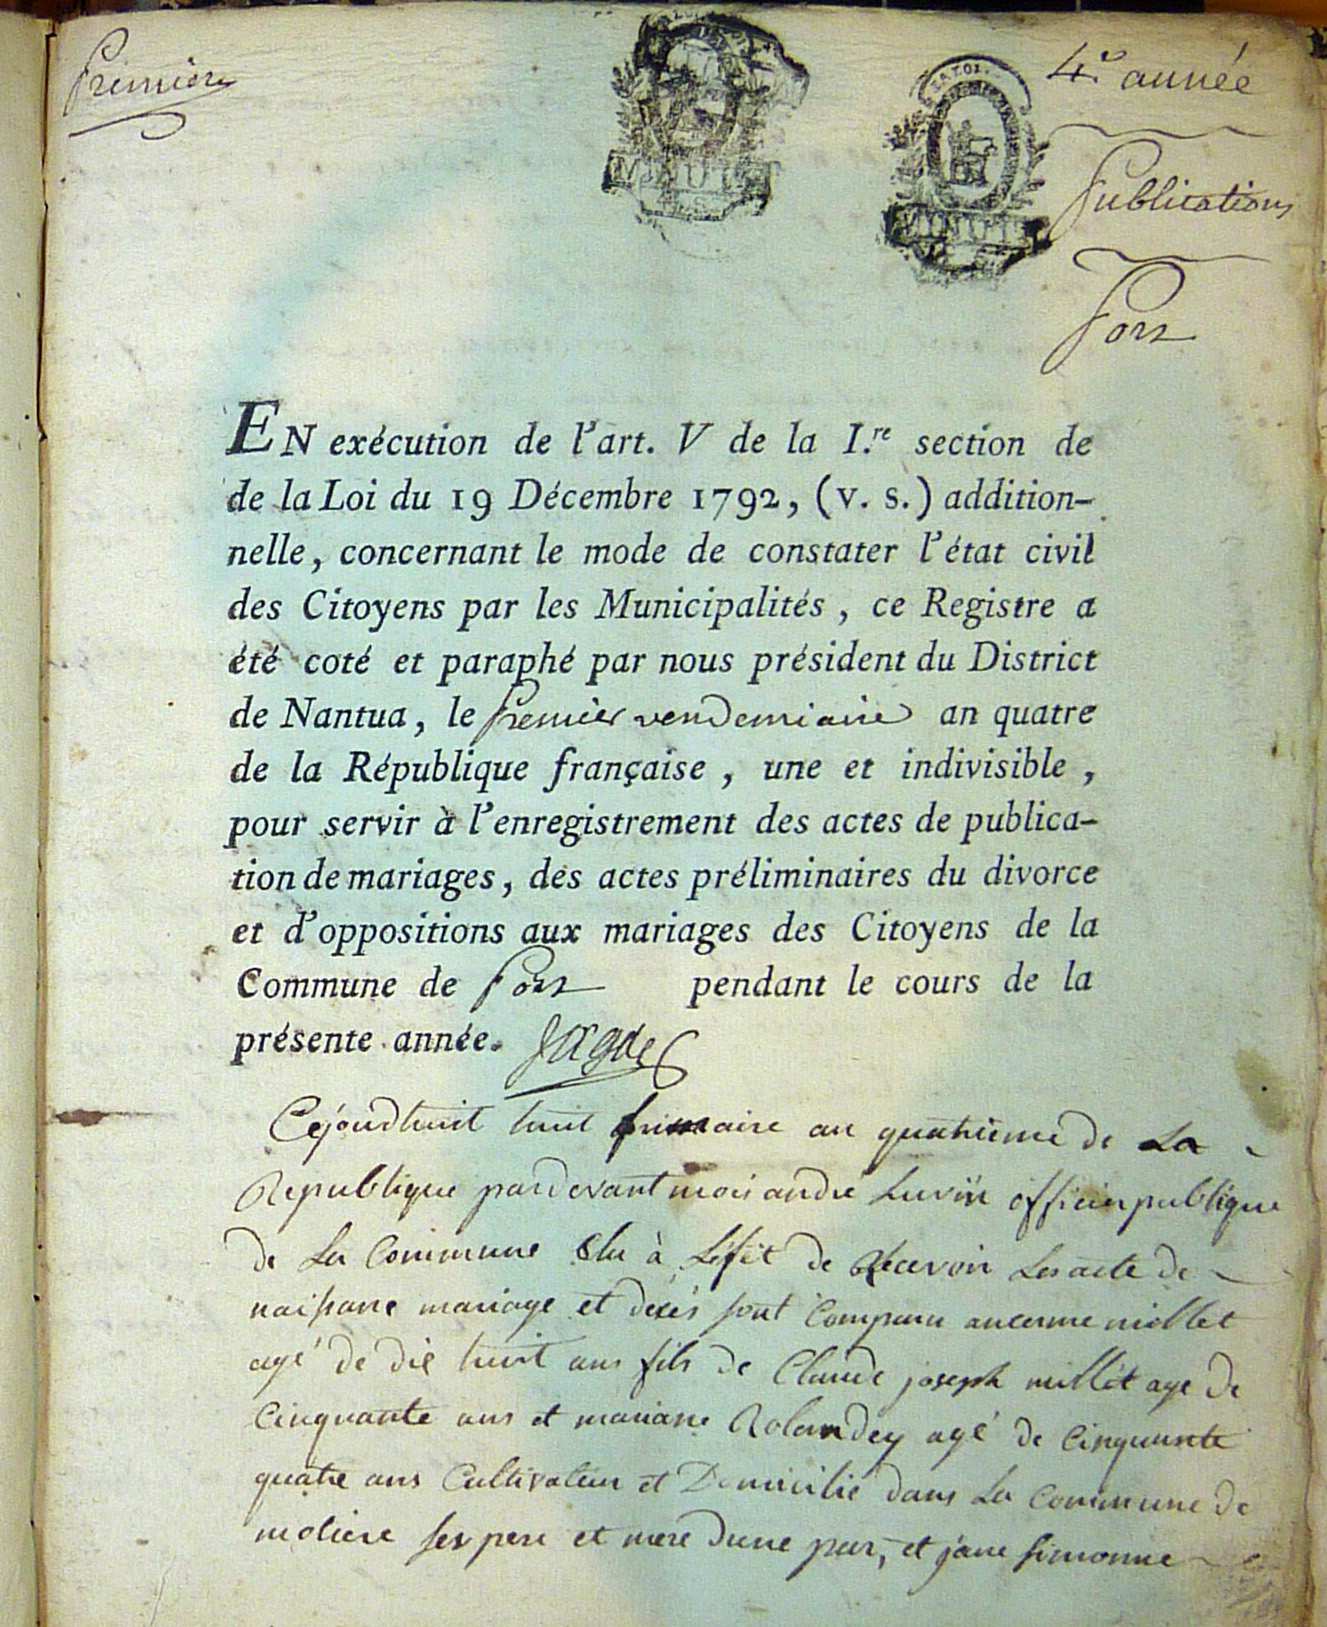 Premiere
4.e année
LA LOI
MINUTE
MINUTE
Publications
Port
EN exécution de l'art. V de la I.re section de
de la Loi du 19 Décembre 1792, (v. s.) addition-
nelle, concernant le mode de constater l'état civil
des Citoyens par les Municipalités, ce Registre a
été coté et paraphé par nous président du District
de Nantua, le Premier vendemiaire an quatre
de la République française, une et indivisible,
pour servir à l'enregistrement des actes de publica-
tion de mariages, des actes préliminaires du divorce
et d'oppositions aux mariages des Citoyens de la
Commune de Port pendant le cours de la
présente année.
Cejourdhuit huit frimaire an quatrieme de La
Republique pardevant moi andré officier publique
de La Commune Elu à Lefet de Recevoir Les acte de
naissane mariage et décés sont Comparu millet
agé de dix huit ans fils de Claude joseph millet age de
Cinquante ans et mariane Rolandey agé de Cinquante
quatre ans Cultivateur et Domicilié dans La Commune de
moliere ses pere et mere dune part, et jane simonne